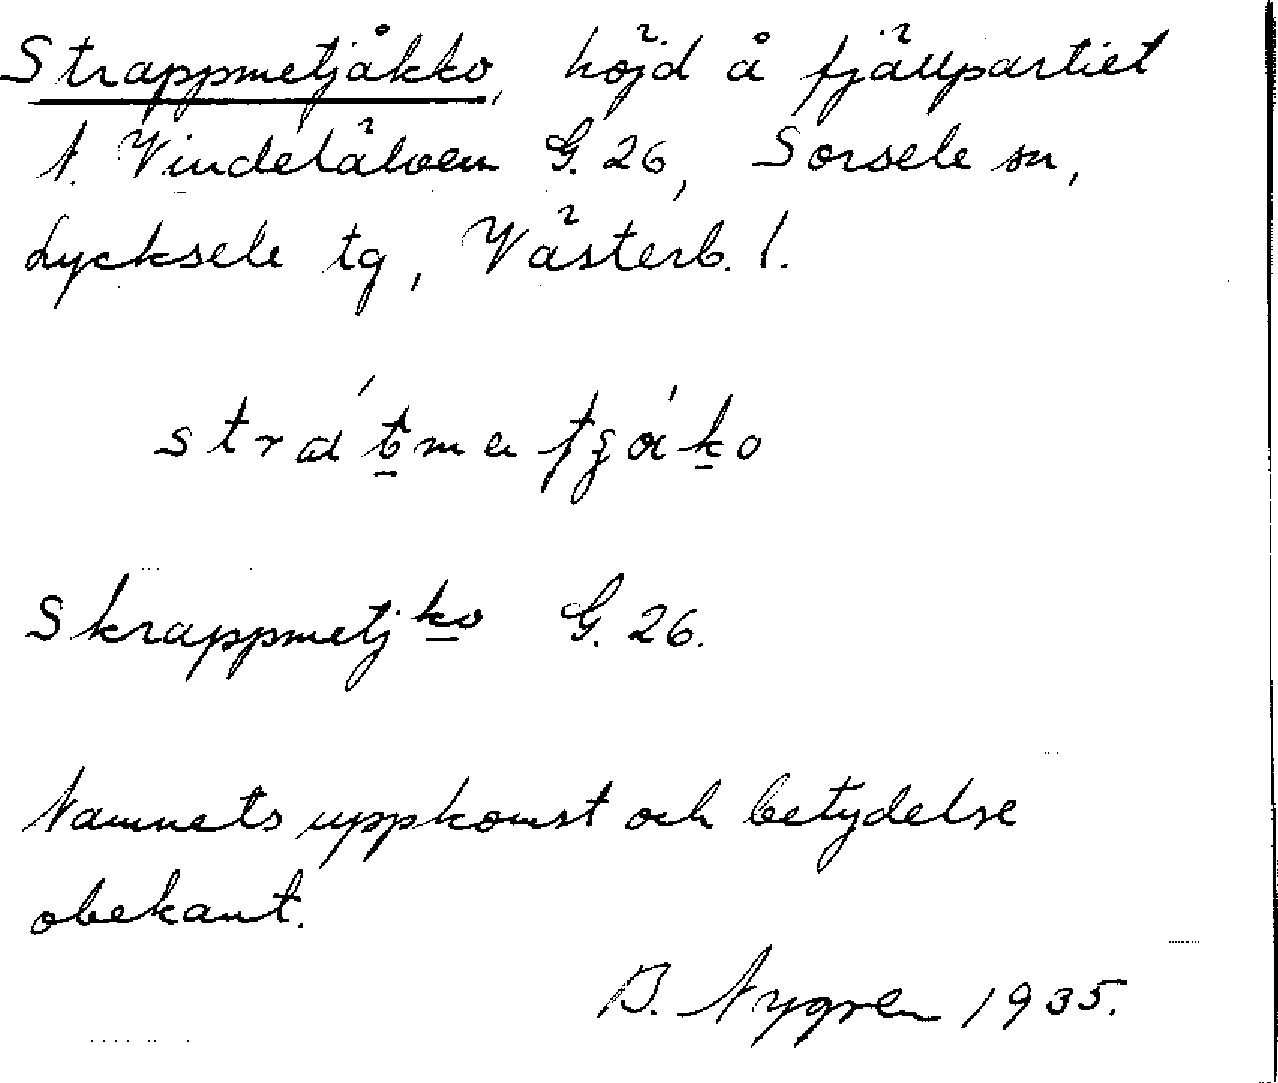 Strappmetjåkko, höjd å fjällpartiet
N. Vindelälven G. 26, Sorsele sn,
Lycksele tg, Västerb. l.
Skrappmetjko G. 26.
Namnets uppkomst och betydelse
obekant.
B. Nygren 1935.